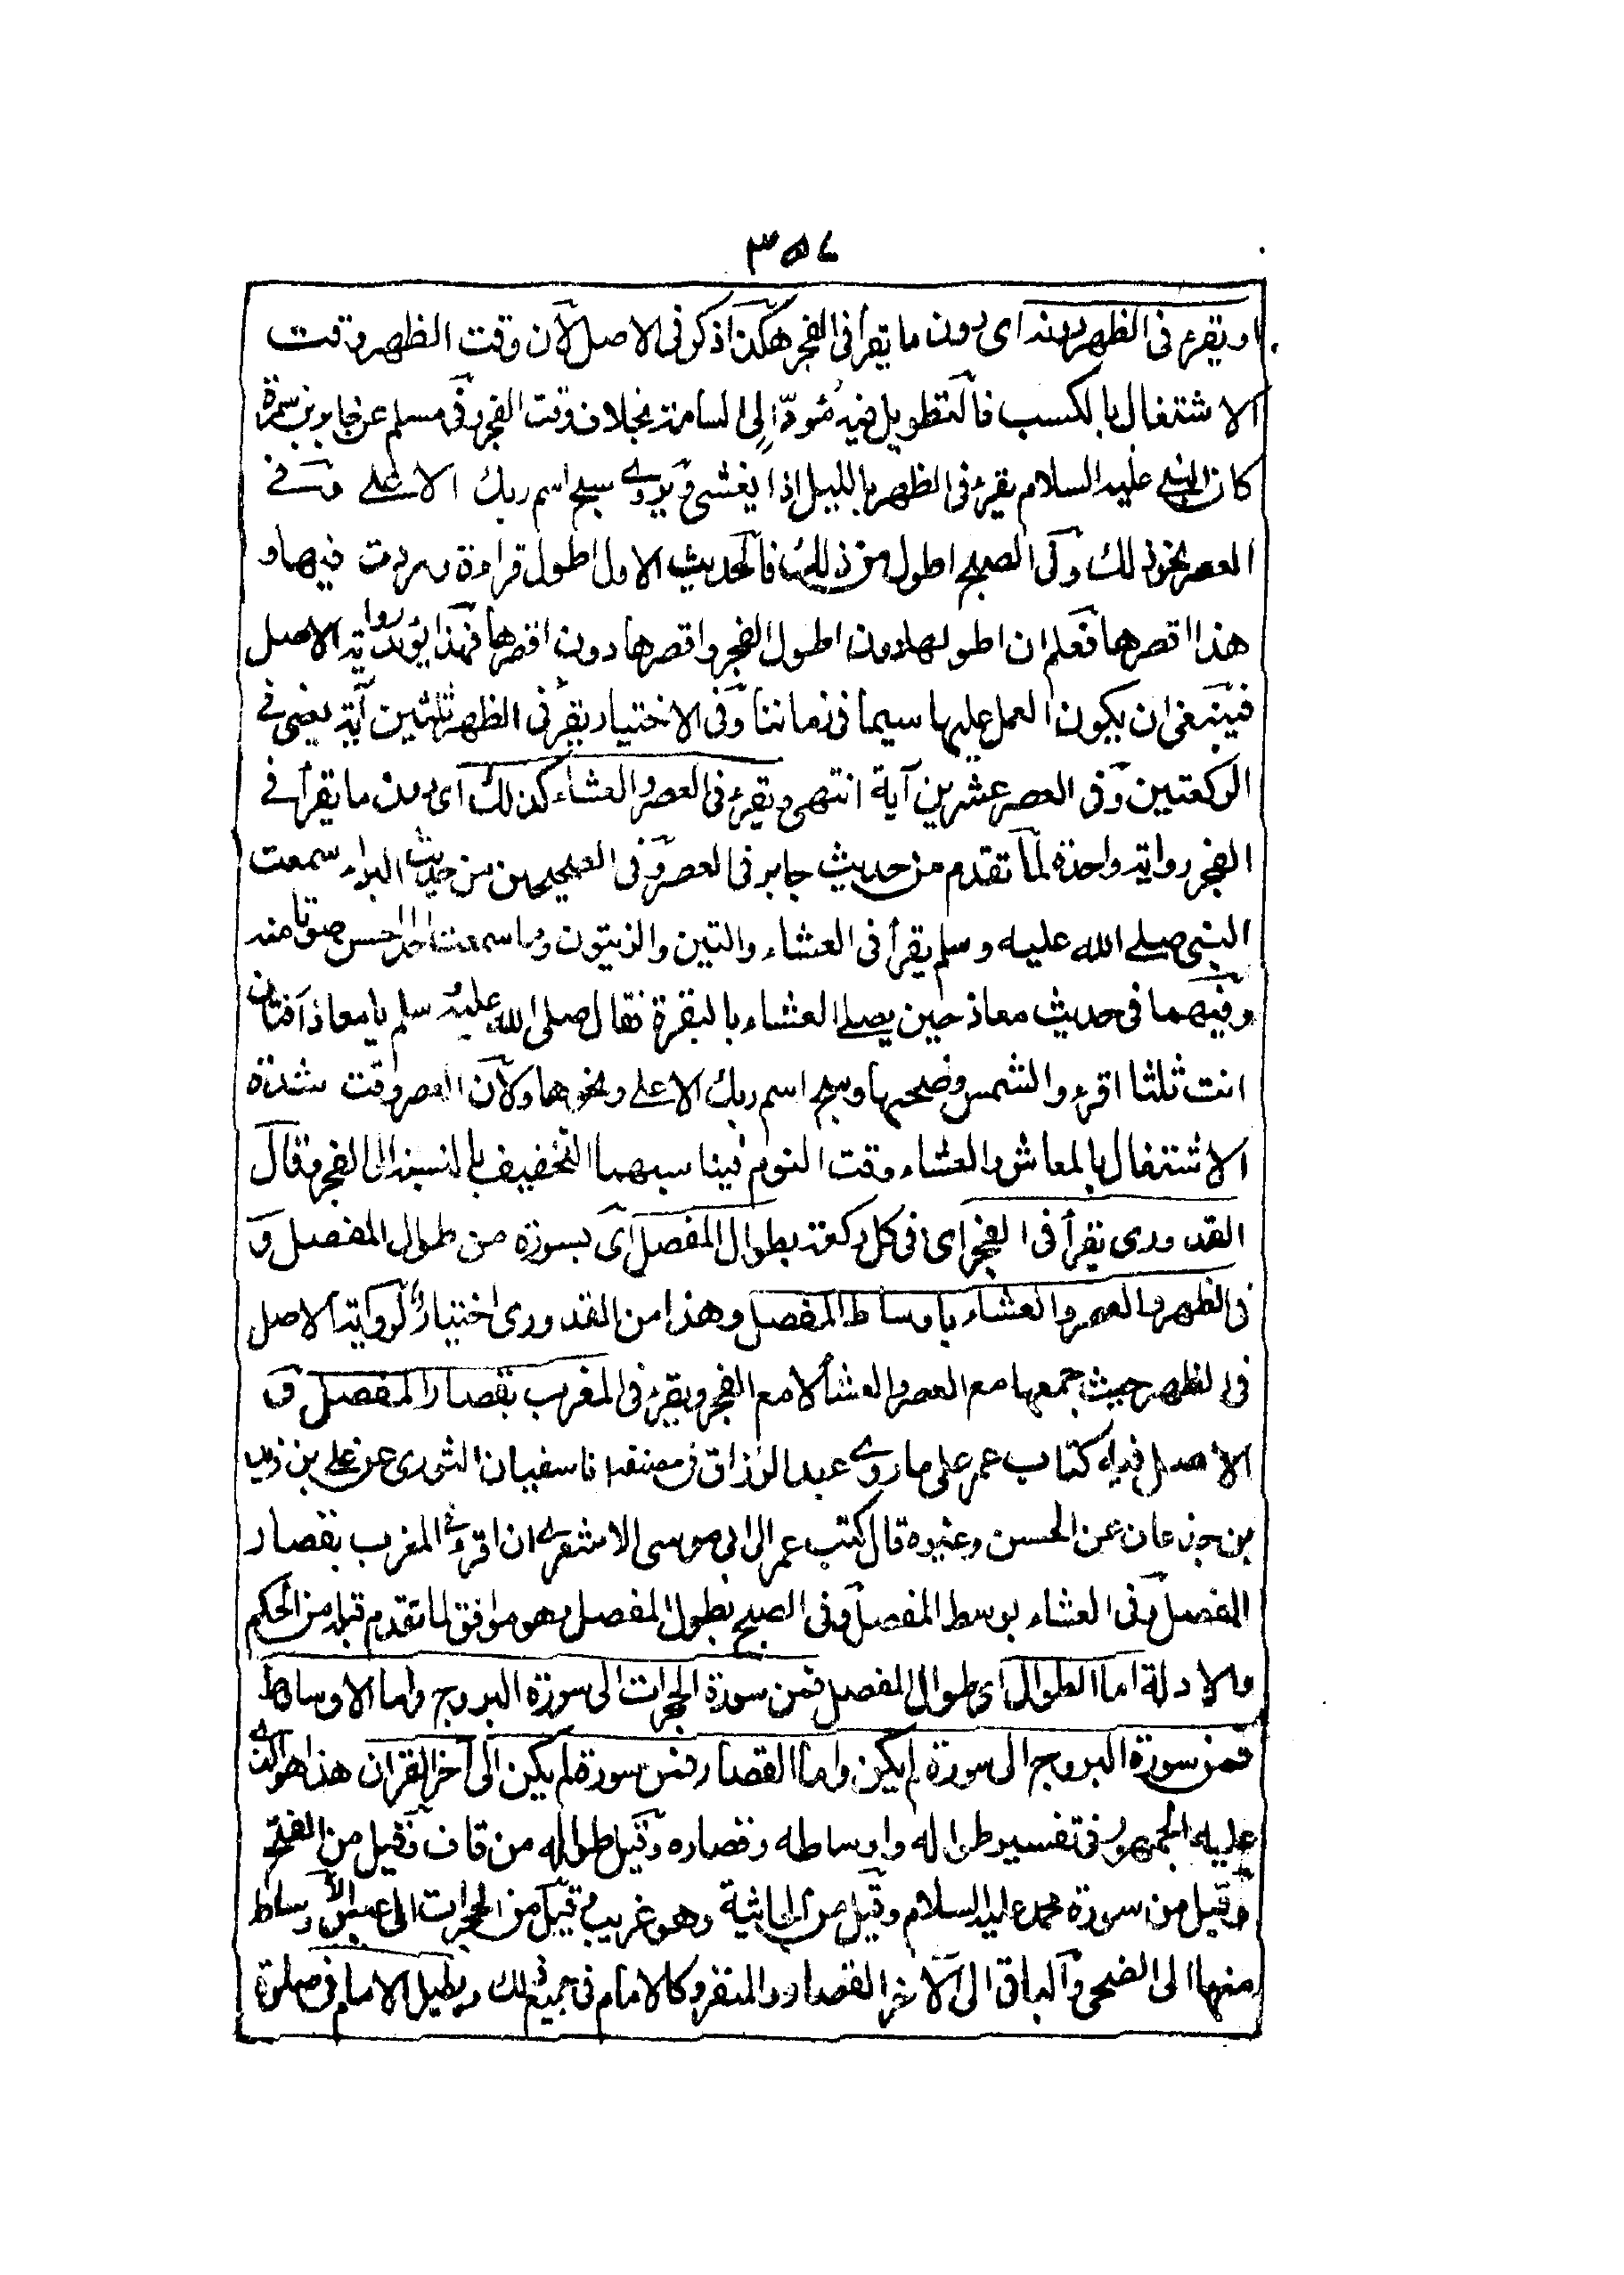 ٣٥٧
او يقرء في الظهر دونه اى دون ما يقرأ في الفجر هكذا ذكر في الاصل لان وقت الظهر وقت
الاشتغال بالكسب فالتطويل فيه مُؤدّ الى السامة بخلاف وقت الفجر وفى مسلم عن جابر بن سمرة
كان النبي عليه السلام يقرء في الظهر بالليل اذا يغشى ويروى سبح اسم ربك الاعلى وفى
العصر نحو ذلك وفى الصبح اطول من ذلك فالحديث الاول اطول قراءة وردت فيها و
هذا اقصرها فعلم ان اطولها دون اطول الفجر واقصرها دون اقصرها فهذا يؤيد رواية الاصل
فينبغى ان يكون العمل عليها سيما في زماننا وفى الاختيار يقرأ في الظهر ثلثين آية يعنى في
الركعتين وفى العصر عشرين آية انتهى ويقرء في العصر والعشاء كذلك اى دون ما يقرأ في
الفجر رواية واحدة لما تقدم من حديث جابر في العصر وفى الصحيحين من حديث البراء سمعت
النبى صلى الله عليه وسلم يقرأ في العشاء والتين والزيتون وما سمعت احدا احسن صوتا منه
وفيهما في حديث معاذ حين يصلى العشاء بالبقرة فقال صلى الله عليه سلم يا معاذ افتان
انت ثلثا اقرء والشمس وضحىها وسبح اسم ربك الاعلى ونحوهما ولان العصر وقت شدة
الاشتغال بالمعاش والعشاء وقت النوم فيناسبهما التخفيف بالنسبة الى الفجر وقال
القدورى يقرأ في الفجر اى في كل ركعة بطوال المفصل اى بسورة من طوال المفصل و
في الظهر والعصر والعشاء باوساط المفصل وهذا من القدورى اختيار لرواية الاصل
في الظهر حيث جمعها مع العصر والعشاء لا مع الفجر ويقرء في المغرب بقصار المفصل و
الاصل فيه كتاب عمر على ما روى عبد الرزاق في مصنفه انا سفيان الثورى عن على بن زيد
بن جدعان عن الحسن وغيره قال كتب عمر الى ابى موسى الاشعرى ان اقرء في المغرب بقصار
المفصل وفى العشاء بوسط المفصل وفى الصبح بطول المفصل وهو موافق لما تقدم قبله من الحكم
والادلة اما الطوال اى طوال المفصل فمن سورة الحجرات الى سورة البروج واما الاوساط
فمن سورة البروج الى سورة لم يكن واما القصار فمن سورة لم يكن الى آخر القران هذا هو الذى
عليه الجمهور في تفسير طواله واوساطه وقصاره وقيل طواله من قاف وقيل من الفتح
وقيل من سورة محمد عليه السلام وقيل من الجاثية وهو غريب وقيل من الحجرات الى عبس والاوساط
منها الى الضحى والباقى الى الآخر القصار والمنفرد كالامام في جميع ذلك ويطيل الامام في صلوة